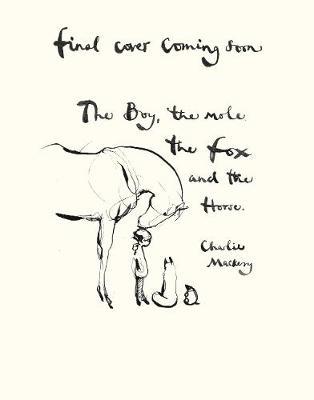 final cover coming soon
The Boy, the mole
the fox
and the
Horse.
Charlie
Mackesy